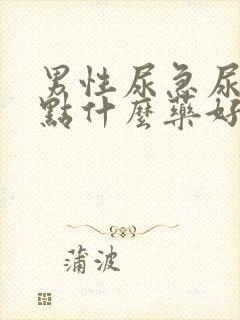 男性尿急尿
點什麼藥好
蒲波